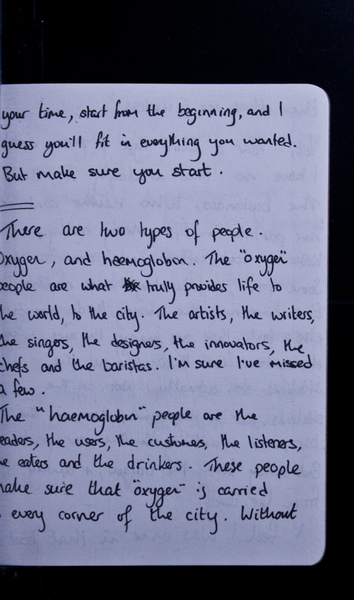 your time, start from the beginning, and I
guess you'll fit in everything you wanted.
But make sure you start.
There are two types of people.
Oxygen, and haemoglobin. The "oxygen"
people are what truly provides life to
the world, to the city. The artists, the writers,
the singers, the designers, the innovators, the
chefs and the baristas. I'm sure I've missed
a few.
The "haemoglobin" people are the
eaders, the users, the customers, the listeners,
he eaters and the drinkers. These people
make sure that "oxygen" is carried
every corner of the city. Without